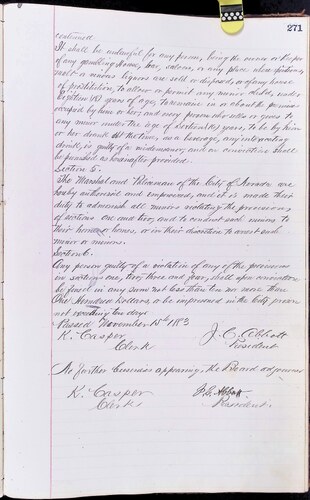 271
continued
It shall be unlawful for any person, being the owner or Keeper
of any gambling House, bar, saloon, or any place where spirituous,
malt or vinous liquors are sold or disposed, or of any house
of prostitution, to allow or permit any minor child, under
Eighteen (18) years of age, to remain in or about the premises
occupied by him or her; and every person who sells or gives to
any minor under the age of Sixteen (16) years, to be by him
or her drunk at the time, as a beverage, any intoxicating
drink, is guilty of a misdemeanor, and on conviction shall
be punished as hereinafter provided.
Section 5.
The Marshal and Policeman of the City of Nevada are
hereby authorized and empowered, and it is made their
duty to admonish all minors violating the provisions
of sections one and two, and to conduct such minors to
their home or homes, or in their discretion to arrest such
minor or minors.
Section 6.
Any person guilty of a violation of any of the provisions
in sections one, two, three and four, shall upon conviction
be fined in any sum not less than ten nor more than
One Hundred Dollars, or be imprisoned in the City prison
not exceeding ten days
Passed November 15th 1883
K. Casper J. C. Abbott
Clerk President
No further business appearing, the Board adjourned
K. Casper J. C. Abbott
Clerk President.